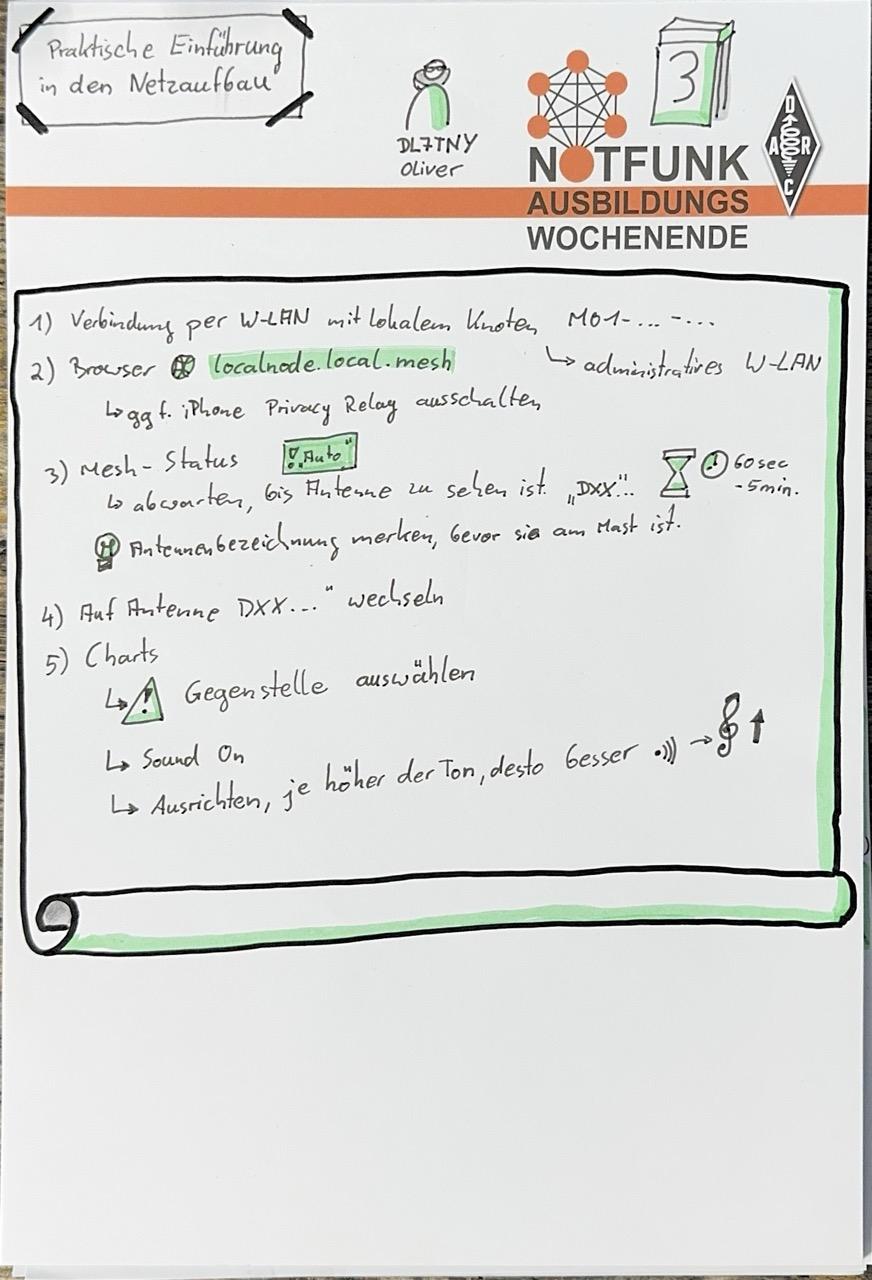 Praktische Einführung
in den Netzaufbau
DL7TNY
Oliver
3
NOTFUNK
AUSBILDUNGS
WOCHENENDE
DARC
1) Verbindung per W-LAN mit lokalem Knoten M01-...-...
↳ administratives W-LAN
2) Browser localnode.local.mesh
↳ ggf. iPhone Privacy Relay ausschalten
3) Mesh-Status ! „Auto"
↳ abwarten, bis Antenne zu sehen ist „DXX"... 60sec
-5min.
Antennenbezeichnung merken, bevor sie am Mast ist.
4) Auf Antenne DXX..." wechseln
5) Charts
↳ ! Gegenstelle auswählen
↳ Sound On
↳ Ausrichten, je höher der Ton, desto besser → ↑